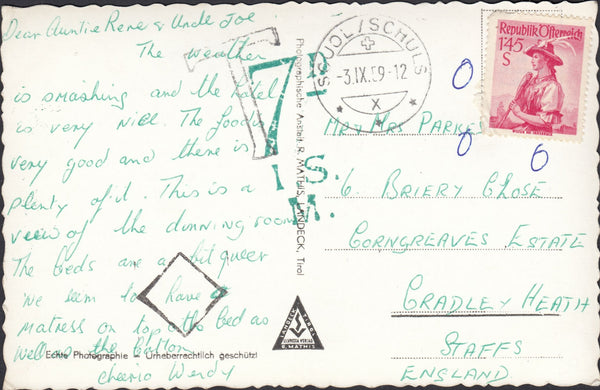 Dear Auntie Rene & Uncle Joe
The weather
is smashing and the hotel
is very nice. The food is
very good and there is
plenty of it. This is a
view of the dinning room
The beds are a bit queer
we seem to have a
matress on top of the bed as
well as the bottom
cheerio Wendy
Echte Photographie – Urheberrechtlich geschützt
Photographische Anstalt R. MATHIS, LANDECK, Tirol
T
7D
I. S.
M.
SCUOL/SCHULS
-3.IX.59-12
X
Republik Österreich
1'45
S
Mr & Mrs PARKES
6. BRIERY CLOSE
CORNGREAVES ESTATE
CRADLEY HEATH
STAFFS
ENGLAND
R. MATHIS